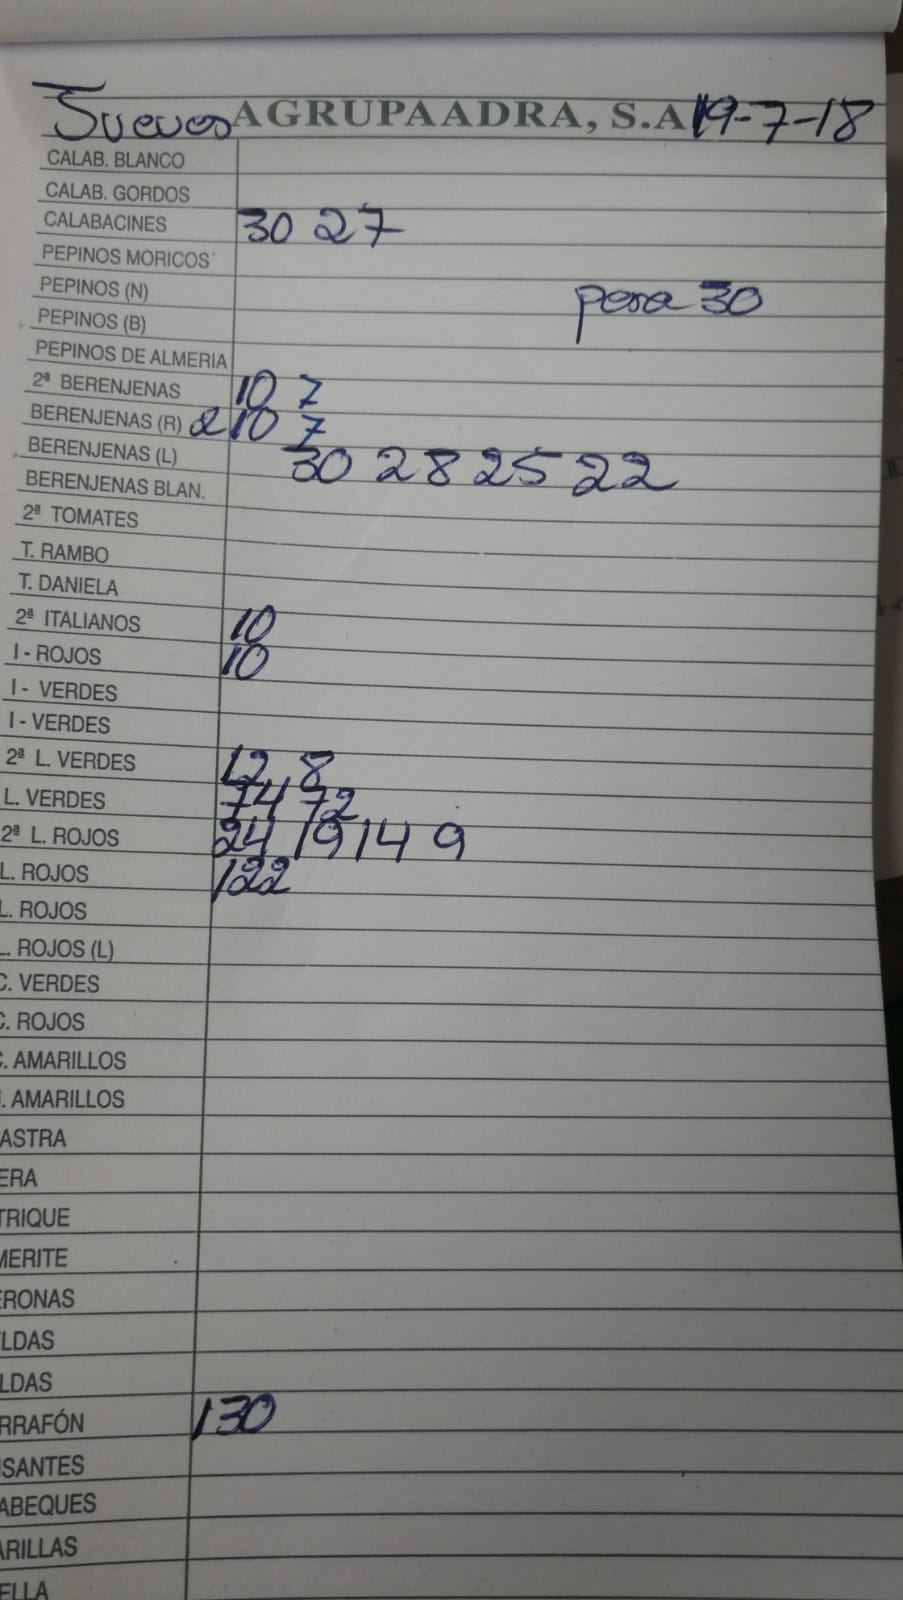 Jueves AGRUPAADRA, S.A 19-7-18
CALAB. BLANCO
CALAB. GORDOS
CALABACINES 30 27
PEPINOS MORICOS
PEPINOS (N) pera 30
PEPINOS (B)
PEPINOS DE ALMERIA
2ª BERENJENAS 10 7
BERENJENAS (R) 2 10 7
BERENJENAS (L) 30 28 25 22
BERENJENAS BLAN.
2ª TOMATES
T. RAMBO
T. DANIELA
2ª ITALIANOS 10
I - ROJOS 10
I - VERDES
I - VERDES
2ª L. VERDES 12 8
L. VERDES 74 72
2ª L. ROJOS 24 19 14 9
L. ROJOS 122
L. ROJOS
L. ROJOS (L)
C. VERDES
C. ROJOS
C. AMARILLOS
. AMARILLOS
ASTRA
ERA
TRIQUE
MERITE
ERONAS
LDAS
LDAS
RRAFÓN 130
ISANTES
ABEQUES
ARILLAS
ELLA